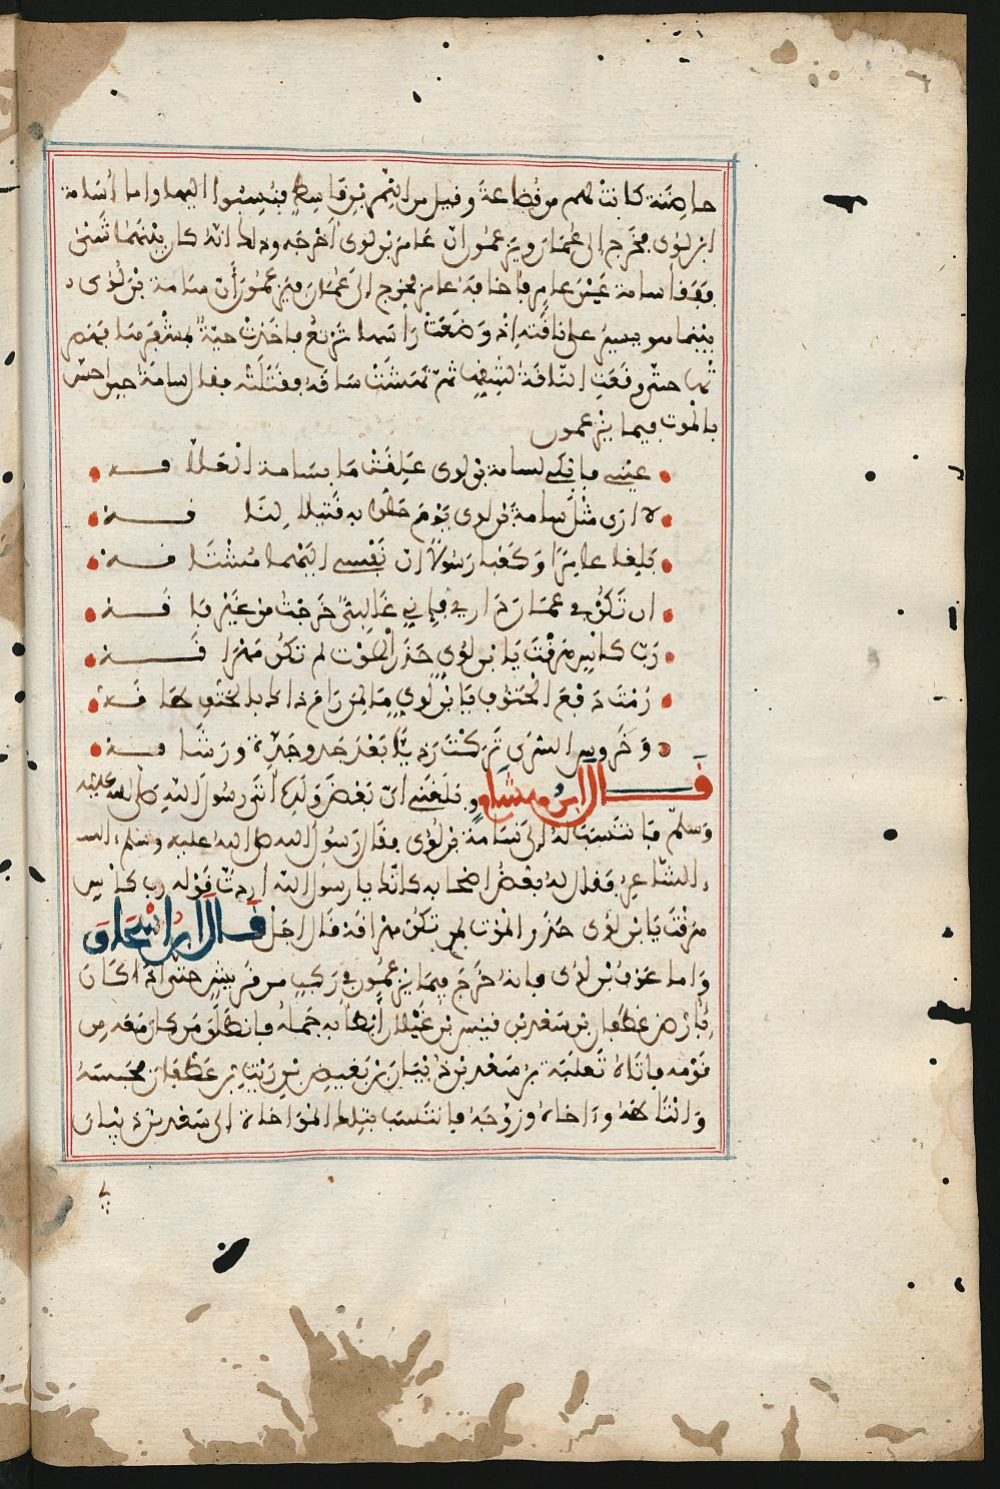 حاضنة كانت لهم من قضاعة وقيل من النمر بن قاسط فنسبوا اليها واما أسامة
ابن لؤى فخرج الى عمان ويزعمون ان عامر بن لوى أخرجه وذلك انه كان بينهما شىء
ففقأ سامة عين عامر فأخافه عامر فخرج الى عمان فيزعمون أن سامة بن لؤى
بينما هو يسير على ناقته إذ وضعت رأسها ترتع فأخذت حية بمشفرها فهصر
تها حتى وقعت الناقة لشقها ثم نهشت ساقه فقتلته فقال سامة حين احس
بالموت فيما يزعمون
عينى فابكى لسامة بن لوى علقت ما بسامة العلا قــه
لا ارى مثل سامة بن لوى يوم حلوا به قتيلا لنا قــه
بلغا عامرا وكعبا رسولا ان نفسى اليهما مشتا قــه
ان تكن في عمان دارى فإني غالبى خرجت من غير فا قــه
رب كاس هرقت يا بن لؤي حذر الموت لم تكن مهرا قــه
رمت دفع الحتوف يا بن لوي ما لمن رام ذاك بالحتف طا قــه
وخروس السرى تركت رديا بعد جد وجدة ورشا قــه
قــال ابن هشام وبلغنى ان بعض ولده أتى رسول الله صلى الله عليه
وسلم فانتسب له إلى سامة بن لؤى فقال رسول الله صلى الله عليه وسلم
الشاعر فقال له بعض اصحابه كانك يا رسول الله أردت قوله رب كاس
هرقت يا بن لؤى حذر الموت لم تكن مهراقة قال اجل قــال ابن اسحاق
واما عوف بن لؤى فانه خرج فيما يزعمون في ركب من قريش حتى اذا كان
بأرض غطفان بن سعد بن قيس بن غيلان أبطأ به جمله فانطلق من كان معه من
قومه فاتاه ثعلبة بن سعد بن ذبيان بن بغيض بن ريث بن غطفان فحبسه
والتاطه وءاخاه وزوجه فانتسب بتلك المواخاة إلى سعد بن ذبيان